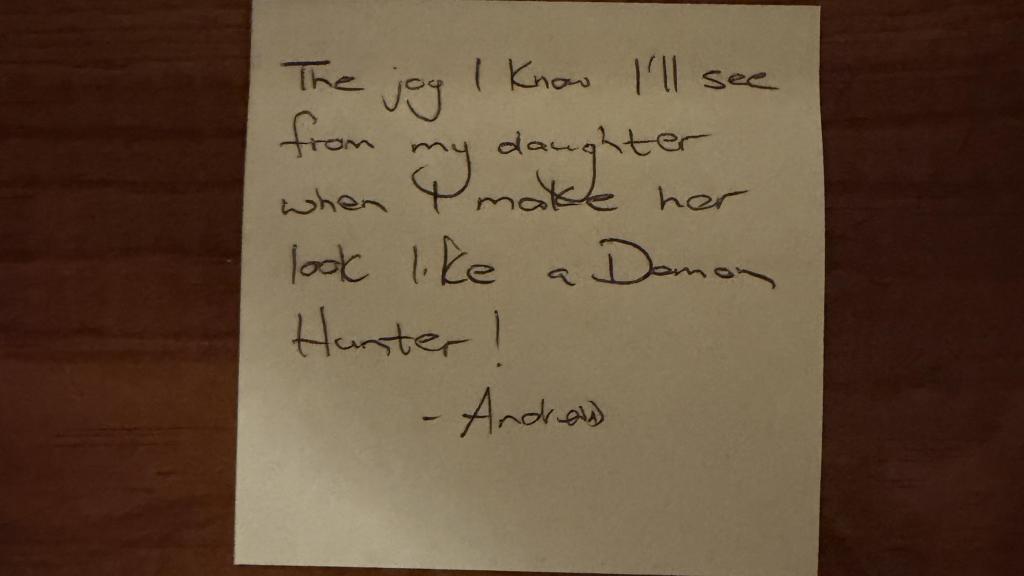 The joy I know I'll see
from my daughter
when I make her
look like a Demon
Hunter!
- Andrew